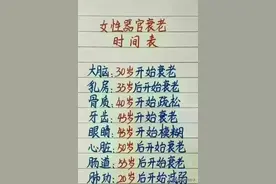 女性器官衰老
时间表
大脑:30岁开始衰老
乳房:35岁后开始衰老
骨质:40岁开始疏松
牙齿:45岁开始衰老
眼睛:45岁开始模糊
心脏:50岁后开始衰老
肠道:55岁后开始衰老
肺功:20岁后开始减弱